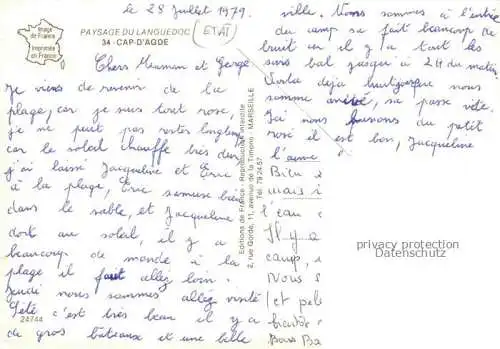 le 28 Juillet 1979.
Image
de France
Imprimée
en France
PAYSAGE DU LANGUEDOC
34 - CAP-D'AGDE
(ETAT)
Chers Meuman et Gerge
Je viens de revenir de la
plage, car je suis tout rose,
je ne peut pas rester longtemps
car le soleil chauffe très dur,
j'ai laissé Jacqueline et Eric
à la plage, Eric samuse bien
dans le sable, et Jacqueline
dort au soleil, il y a
beaucoup de monde à la
plage il faut allez loin.
Jeudi nous sommes allez visité
Sète c'est très beau il y a
de gros bâteaux et une belle
24744
Editions de France - Reproduction interdite
2, rue Gorde, 11, avenue de la Timone - MARSEILLE
Tél. 79 24 57
ville. Nous sommes à l'entrée
du camp sa fait beaucoup de
bruit en il y a tout les
soirs bal jusqu'à 2 H du matin
Voila déja huit jours que nous
somme arrivé, sa passe vite.
J'ai nous buvons du petit
rosé il est bon, Jacqueline
l'aime
mais
l'eau
Il y a
camp,
Nous s
(et pe
Bons Ba
privacy protection
Datenschutz